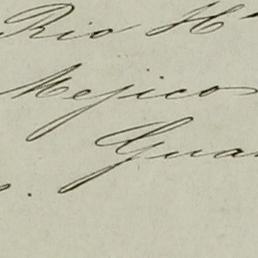 Rio H
Mejico
Gua